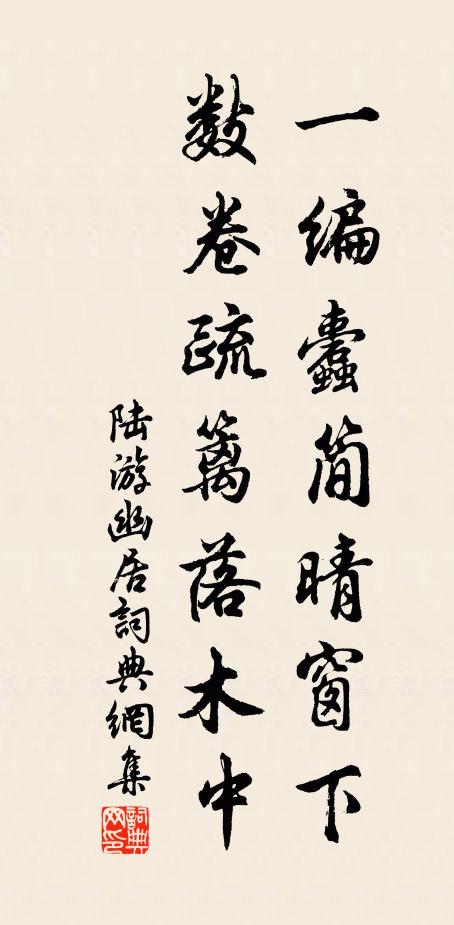 一编蠹简晴窗下
数卷疏篱落木中
陆游幽居詞典網集
詞典网印